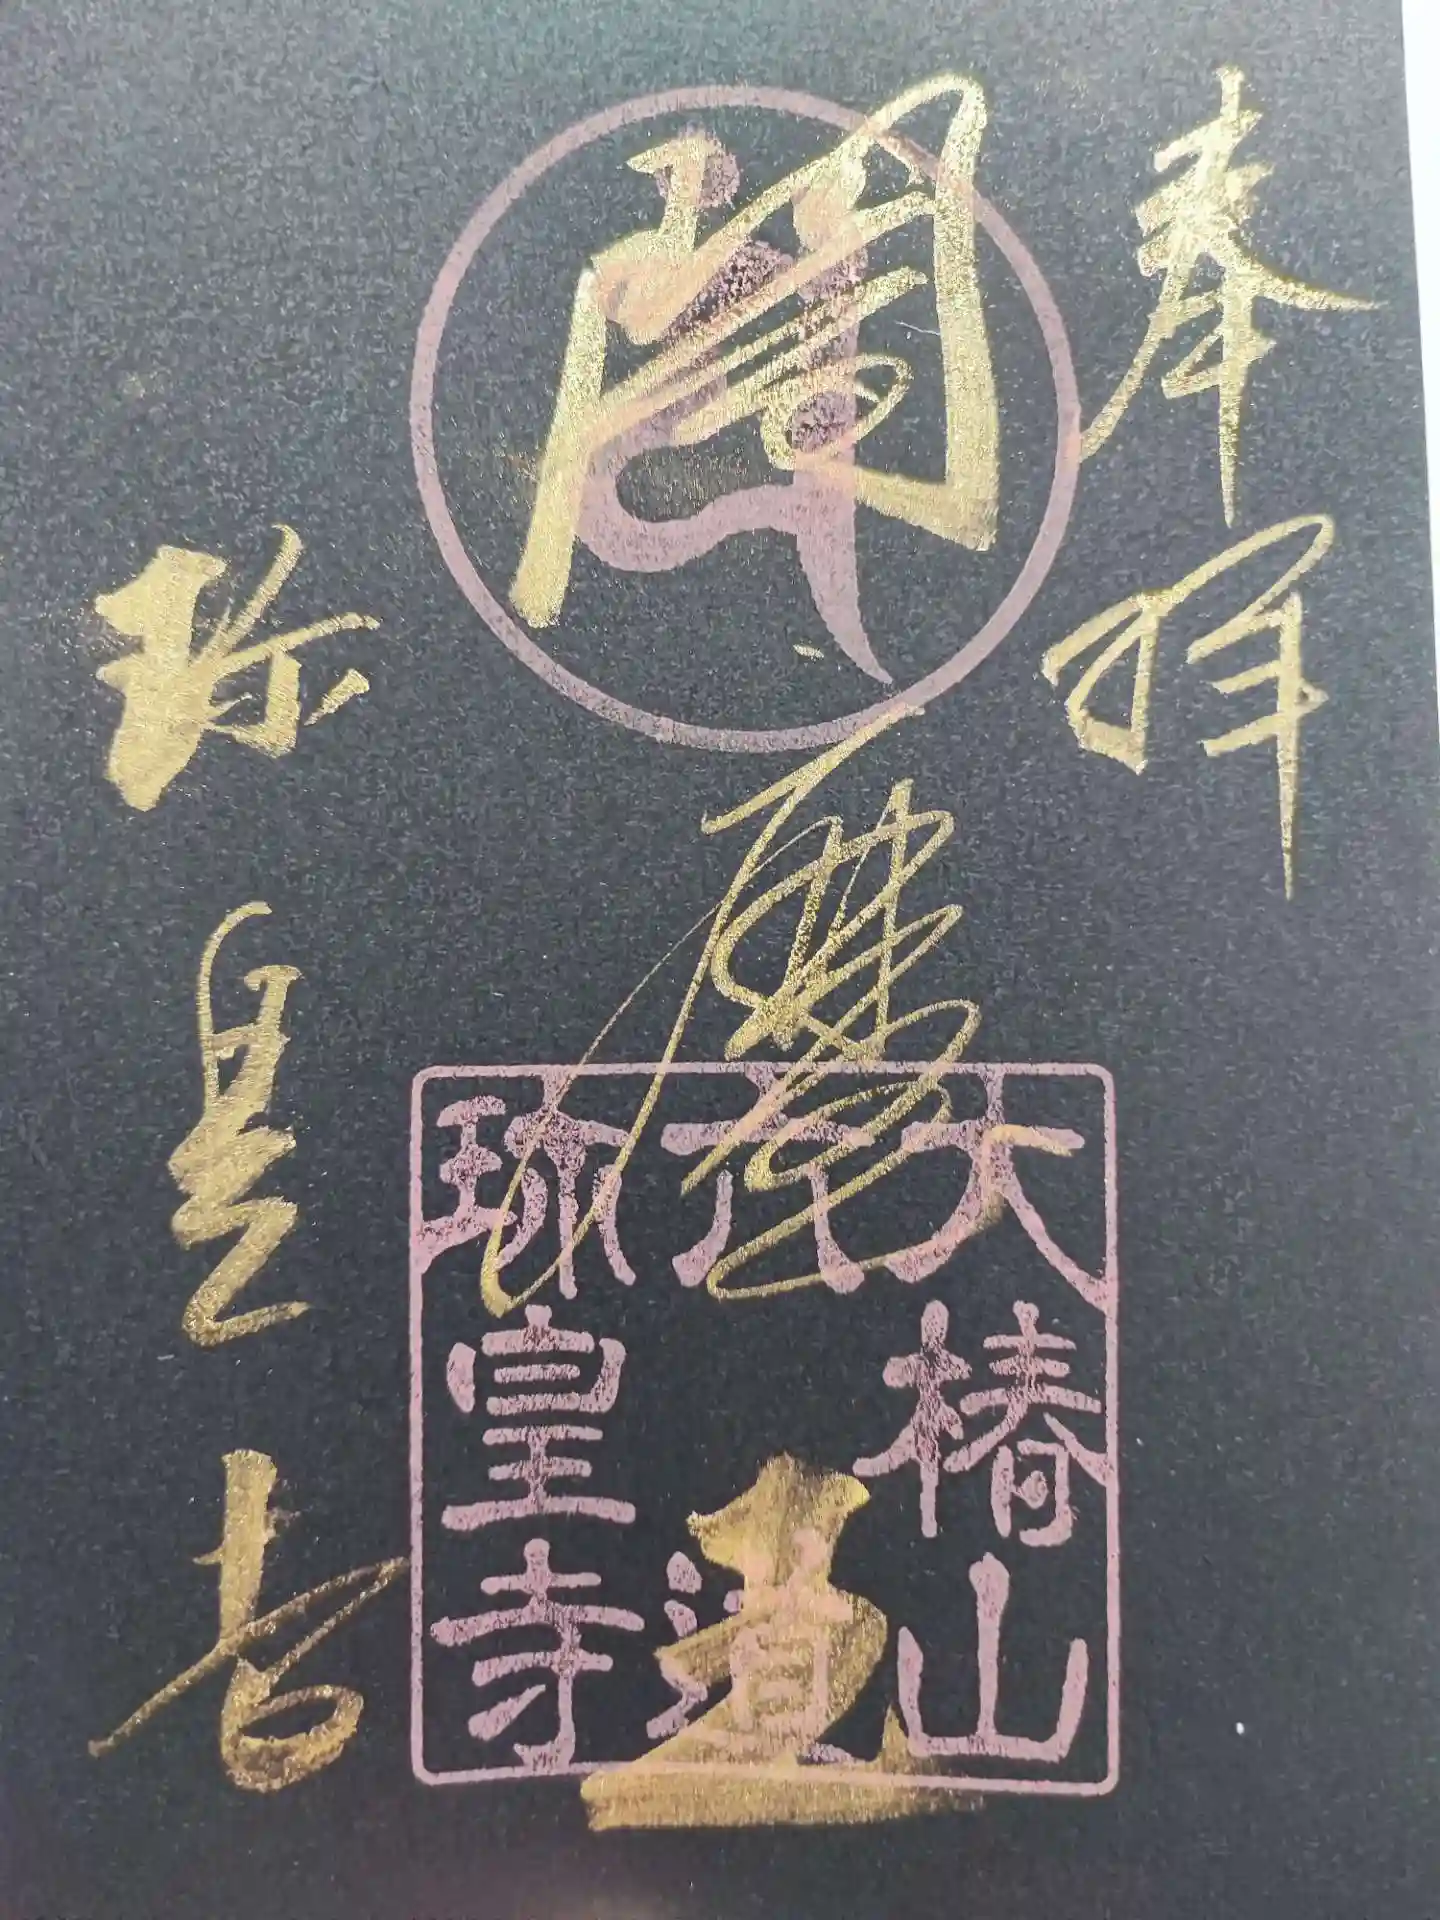 奉拝
閻魔王
珍皇寺
大椿山
六道
珍皇寺